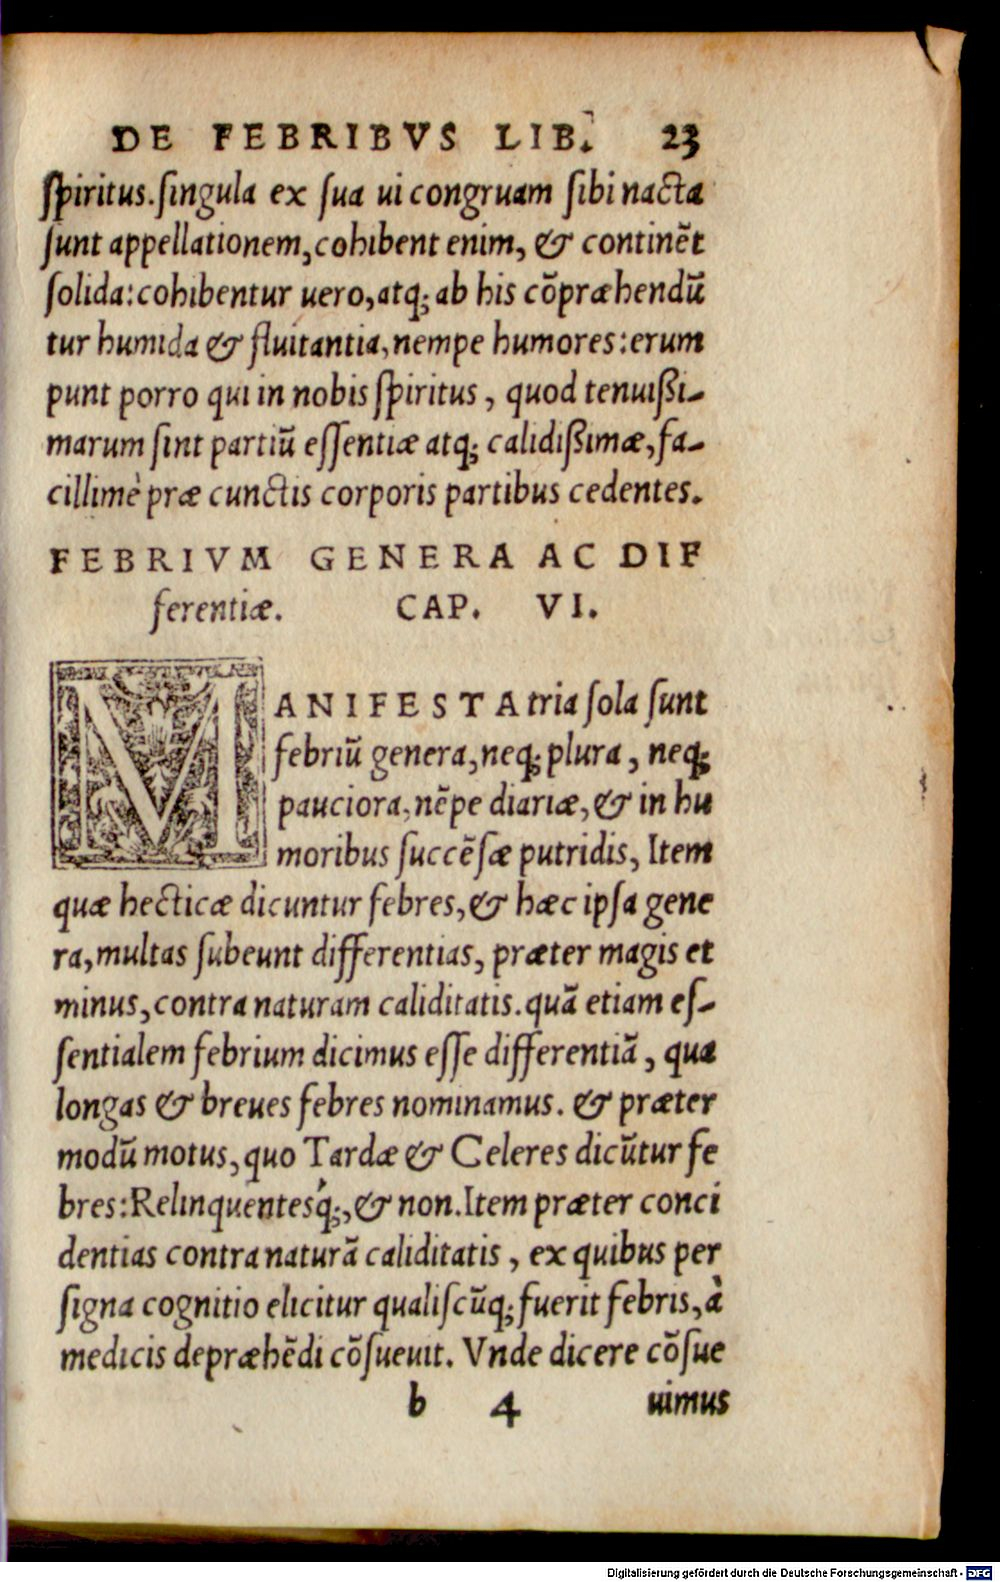 DE FEBRIBVS LIB. 23
ſpiritus.ſingula ex ſua ui congruam ſibi nacta
ſunt appellationem, cohibent enim, & continēt
ſolida: cohibentur uero, atq; ab his cōpræhendū
tur humida & fluitantia, nempe humores: erum
punt porro qui in nobis ſpiritus, quod tenuißi-
marum ſint partiū eſſentiæ atq; calidißimæ, fa-
cillimè præ cunctis corporis partibus cedentes.
FEBRIVM GENERA AC DIF
ferentiæ. CAP. VI.
MANIFESTA tria ſola ſunt
febriū genera, neq; plura, neq;
pauciora, nēpe diariæ, & in hu
moribus ſuccēſæ putridis, Item
quæ hecticæ dicuntur febres, & hæc ipſa gene
ra, multas ſubeunt differentias, præter magis et
minus, contra naturam caliditatis. quā etiam eſ-
ſentialem febrium dicimus eſſe differentiā, qua
longas & breues febres nominamus. & præter
modū motus, quo Tardæ & Celeres dicūtur fe
bres: Relinquentesq́;, & non. Item præter conci
dentias contra naturā caliditatis, ex quibus per
ſigna cognitio elicitur qualiſcūq; fuerit febris, à
medicis depræhēdi cōſueuit. Vnde dicere cōſue
b 4 uimus
Digitalisierung gefördert durch die Deutsche Forschungsgemeinschaft - DFG